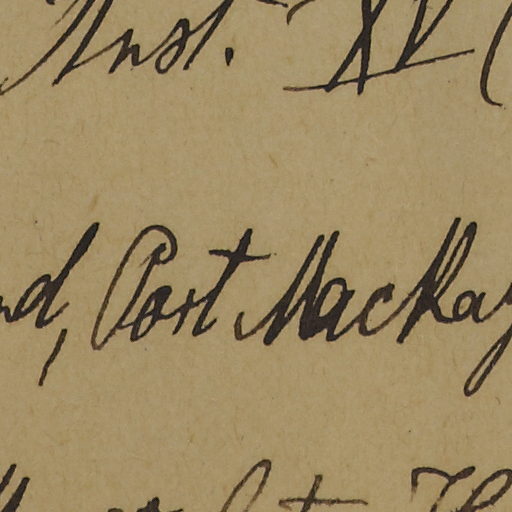 Inst. XV (
nd, Port Mackay